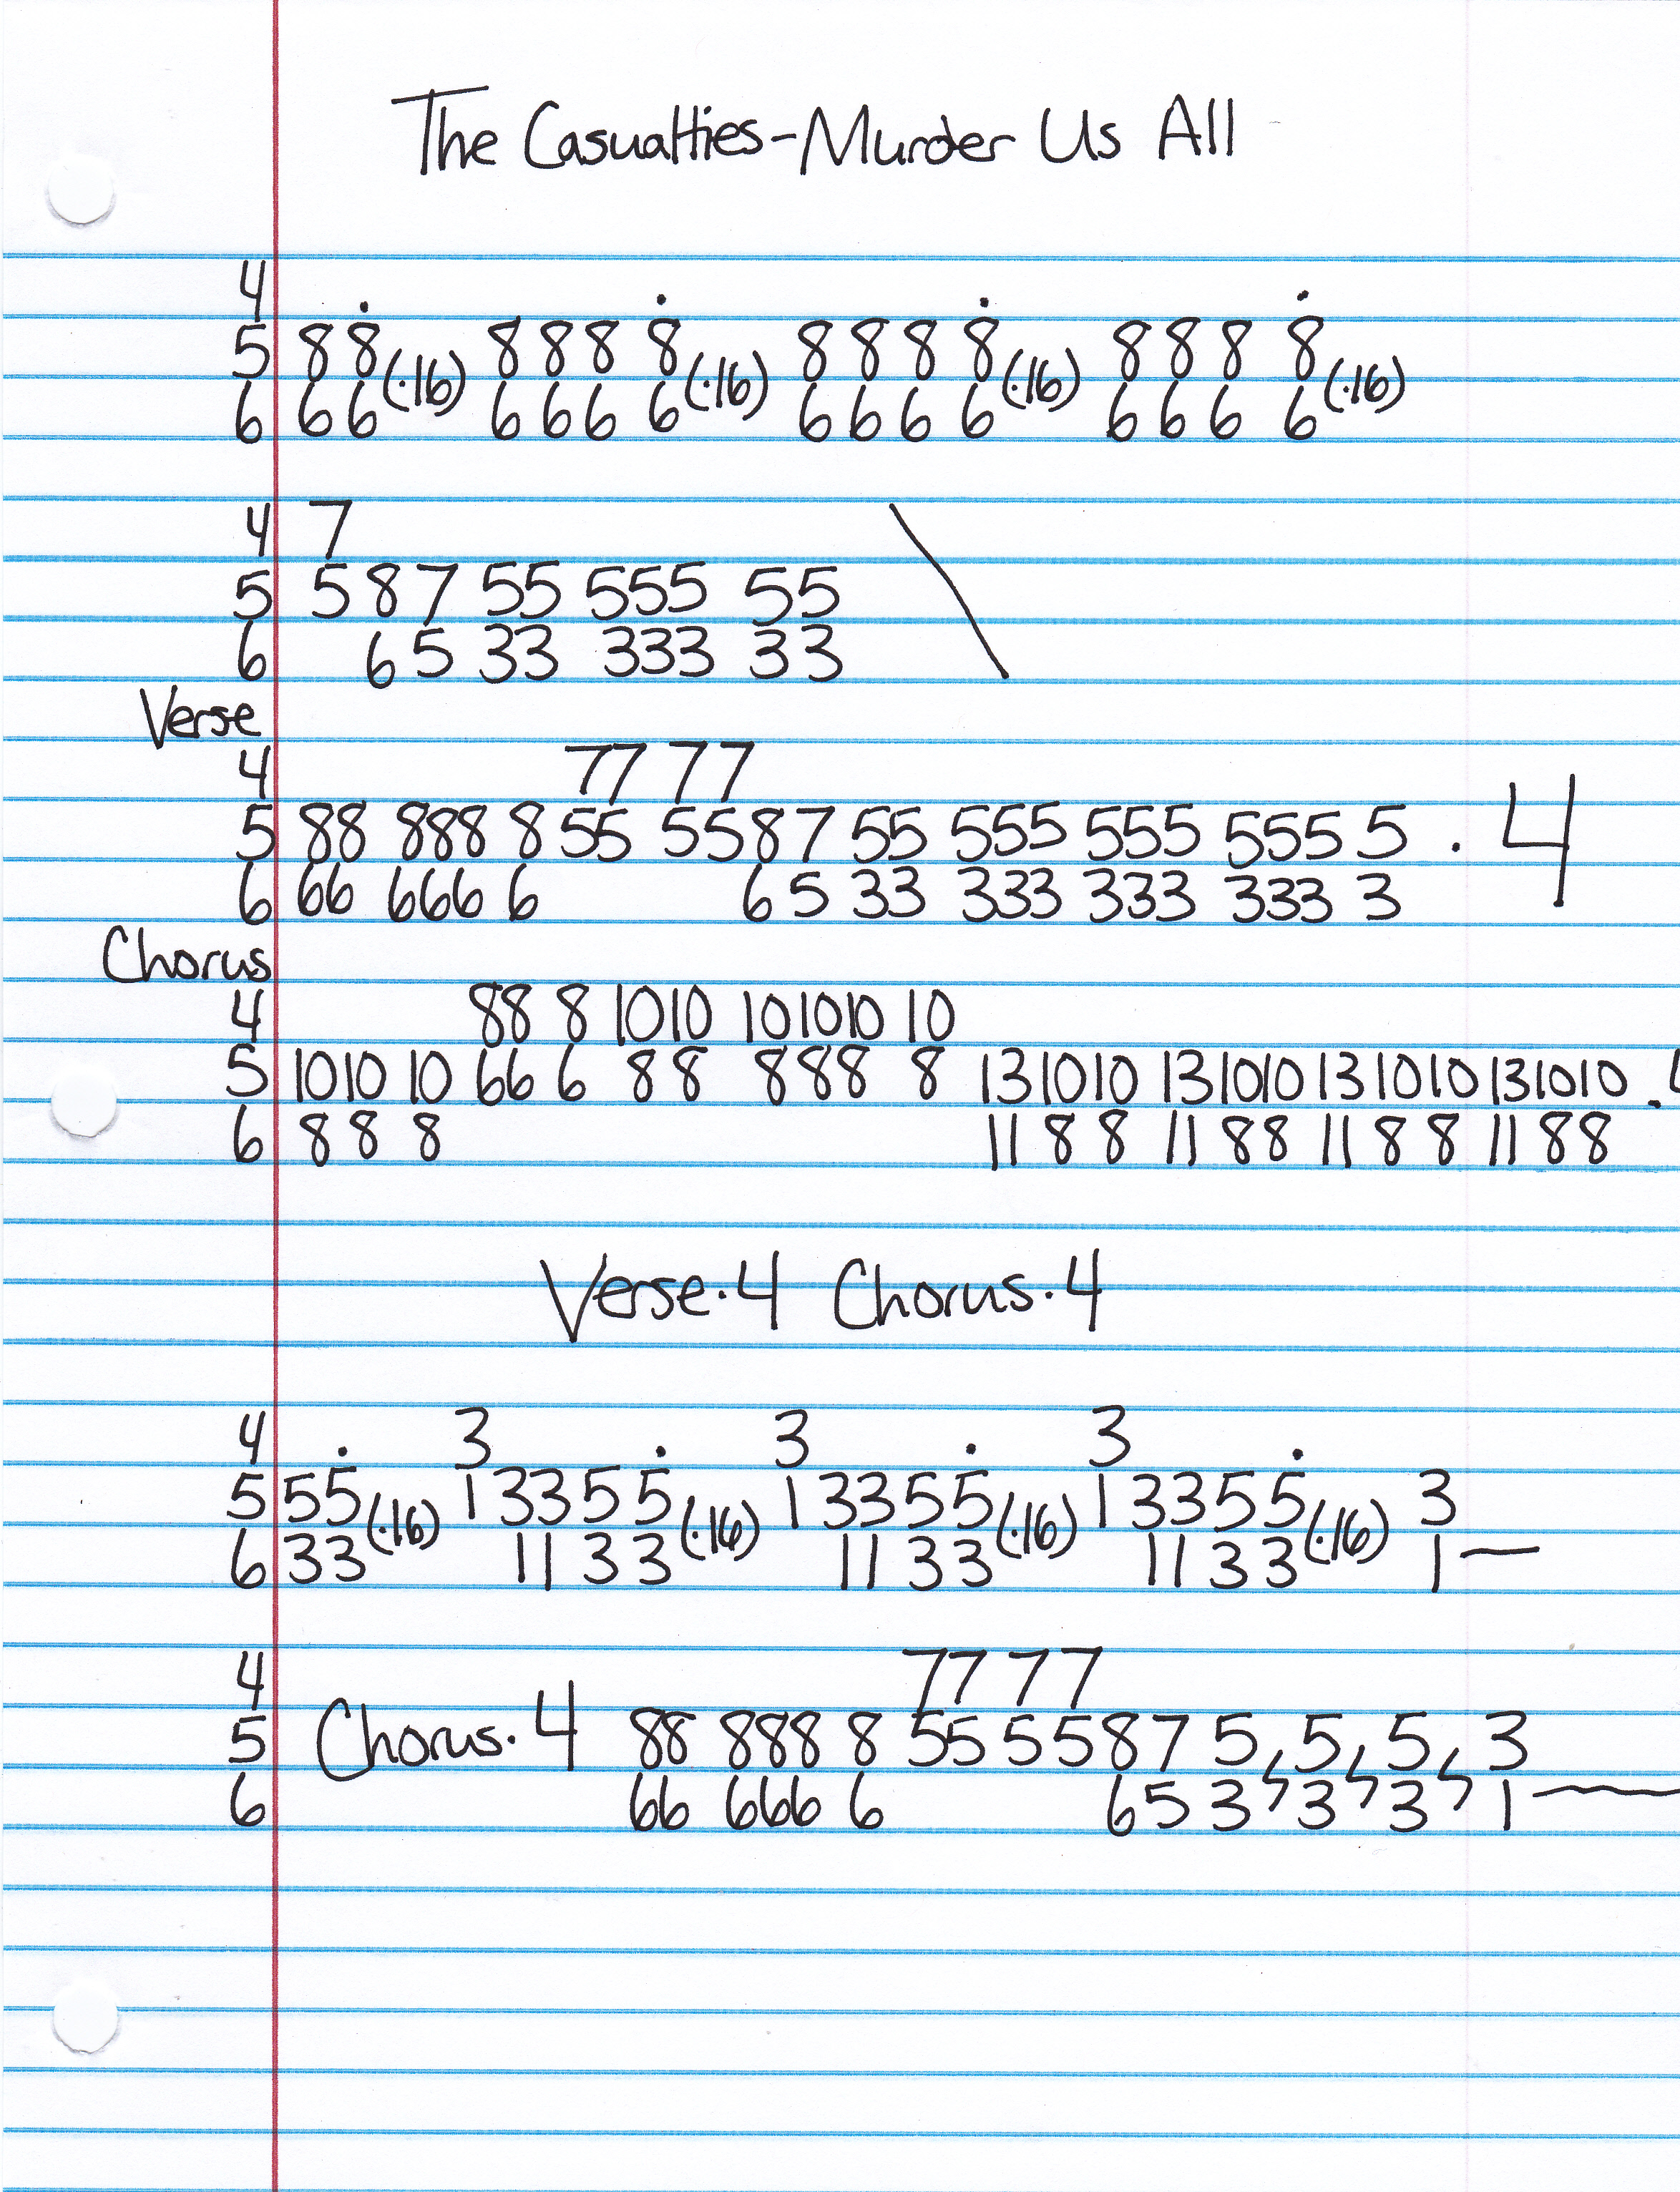 The Casualties-Murder Us All
4
5 8 8 (·16) 8 8 8 8 (·16) 8 8 8 8 (·16) 8 8 8 8 (·16)
6 6 6 6 6 6 6 6 6 6 6 6 6 6 6
4 7
5 5 8 7 55 555 55
6 6 5 33 333 33
Verse
4 77 77
5 88 888 8 55 55 8 7 55 555 555 555 5 . 4
6 66 666 6 6 5 33 333 333 333 3
Chorus
4 88 8 1010 101010 10
5 1010 10 66 6 88 888 8 131010 131010 131010 131010 .
6 8 8 8 11 8 8 11 88 11 8 8 11 88
Verse·4 Chorus·4
4 3 3 3
5 55 (·16) 13355 (·16) 13355 (·16) 13355 (·16) 3
6 33 11 33 11 33 11 33 1
4 77 77
5 Chorus·4 88 888 8 55 55 8 7 5 5 5 3
6 66 666 6 6 5 3 3 3 1